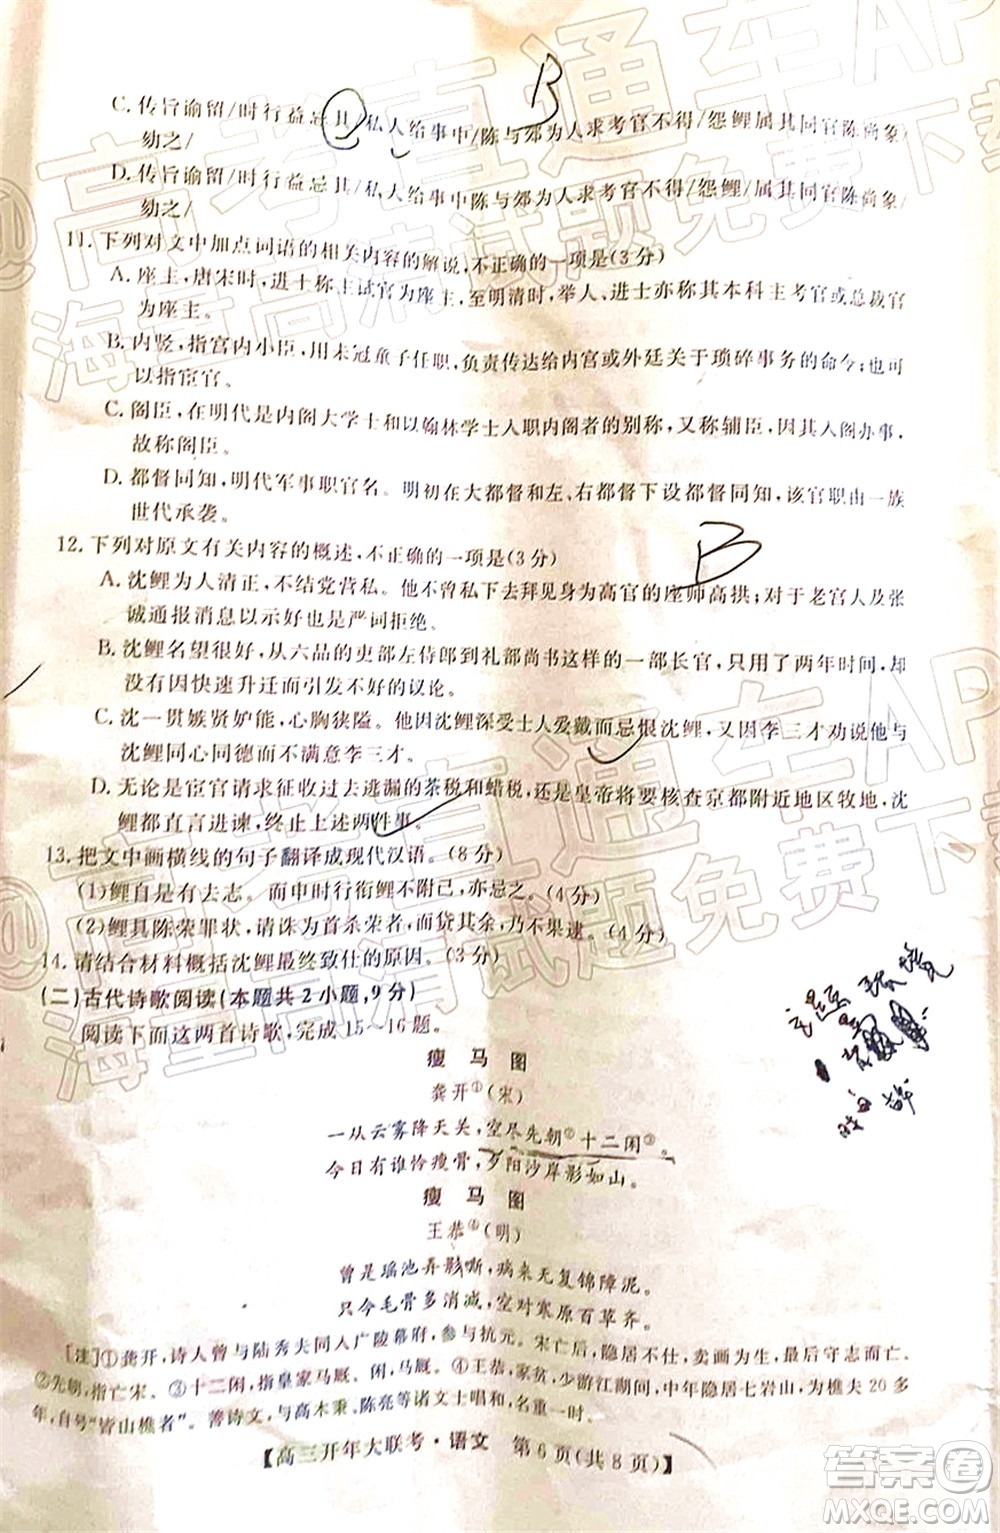 C. 传旨谕留/时行益忌其/私人给事中/陈与郊为人求考官不得/怨鲤属其同官陈尚象/
劾之/
D. 传旨谕留/时行益忌其/私人给事中陈与郊为人求考官不得/怨鲤/属其同官陈尚象/
劾之/
11. 下列对文中加点词语的相关内容的解说,不正确的一项是(3分)
A. 座主,唐宋时,进士称主试官为座主,至明清时,举人、进士亦称其本科主考官或总裁官
为座主。
B. 内竖,指宫内小臣,用未冠童子任职,负责传达给内宫或外廷关于琐碎事务的命令;也可
以指宦官。
C. 阁臣,在明代是内阁大学士和以翰林学士入职内阁者的别称,又称辅臣,因其入阁办事,
故称阁臣。
D. 都督同知,明代军事职官名。明初在大都督和左、右都督下设都督同知,该官职由一族
世代承袭。
12. 下列对原文有关内容的概述,不正确的一项是(3分)
B
B
A. 沈鲤为人清正,不结党营私。他不曾私下去拜见身为高官的座师高拱;对于老宦人及张
诚通报消息以示好也严词拒绝。
B. 沈鲤名望很好,从六品的吏部左侍郎到礼部尚书这样的一部长官,只用了两年时间,却
没有因快速升迁而引发不好的议论。
C. 沈一贯嫉贤妒能,心胸狭隘。他因沈鲤深受士人爱戴而忌恨沈鲤,又因李三才劝说他与
沈鲤同心同德而不满意李三才。
D. 无论是宦官请求征收过去逃漏的茶税和蜡税,还是皇帝将要核查京都附近地区牧地,沈
鲤都直言进谏,终止上述两件事。
13. 把文中画横线的句子翻译成现代汉语。(8分)
(1)鲤自是有去志。而申时行衔鲤不附己,亦忌之。(4分)
(2)鲤具陈荣罪状,请诛为首杀荣者,而贷其余,乃不果逮。(4分)
14. 请结合材料概括沈鲤最终致仕的原因。(3分)
(二)古代诗歌阅读(本题共2小题,9分)
阅读下面这两首诗歌,完成15~16题。
瘦 马 图
龚开①(宋)
一从云雾降天关,空尽先朝②十二闲③。
今日有谁怜瘦骨,夕阳沙岸影如山。
瘦 马 图
王恭④(明)
曾是瑶池弄影嘶,病来无复锦障泥。
只今毛骨多消减,空对寒原百草齐。
[注]①龚开,诗人曾与陆秀夫同入广陵幕府,参与抗元。宋亡后,隐居不仕,最后守志而亡。
②先朝,指亡宋。③十二闲,指皇家马厩。闲,马厩。④王恭,家贫,少游江湖间,中年隐居七岩山,为樵夫20多
年,自号“皆山樵者”。善诗文,与高木秉、陈亮等诸文士唱和,名重一时。
【高三开年大联考·语文 第6页(共8页)】
答案圈
MXQE.COM